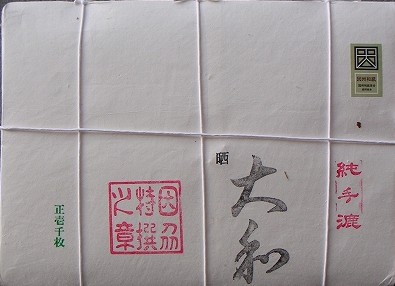 因州和紙
純手漉
晒
大和
因州
特撰
之章
正壱千枚